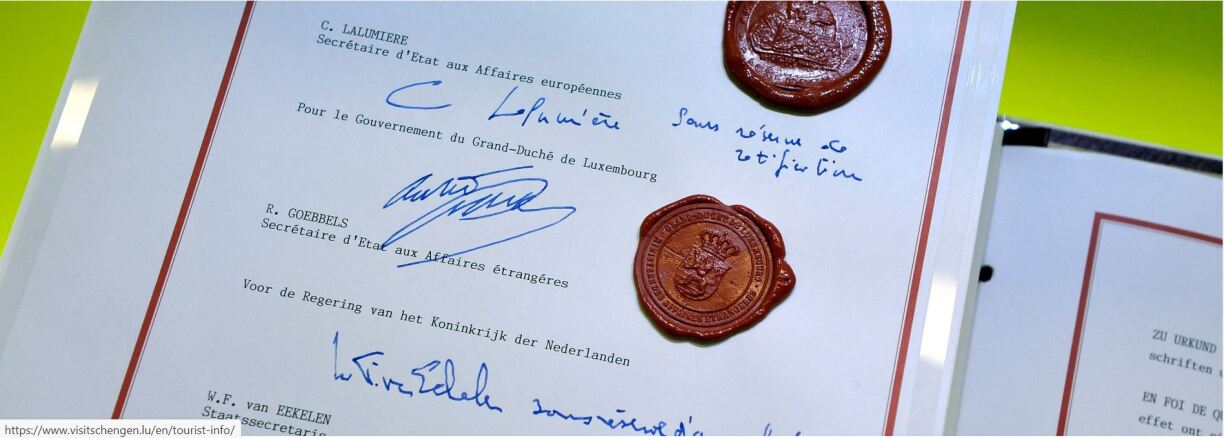 C. LALUMIERE
Secrétaire d'Etat aux Affaires européennes
C Lalumière
Sous réserve de
ratification
Pour le Gouvernement du Grand-Duché de Luxembourg
R. GOEBBELS
Secrétaire d'Etat aux Affaires étrangéres
Voor de Regering van het Koninkrijk der Nederlanden
sous réserve d'
W.F. van EEKELEN
Staatssecretaris
ZU URKUND
schriften
EN FOI DE
effet ont
https://www.visitschengen.lu/en/tourist-info/